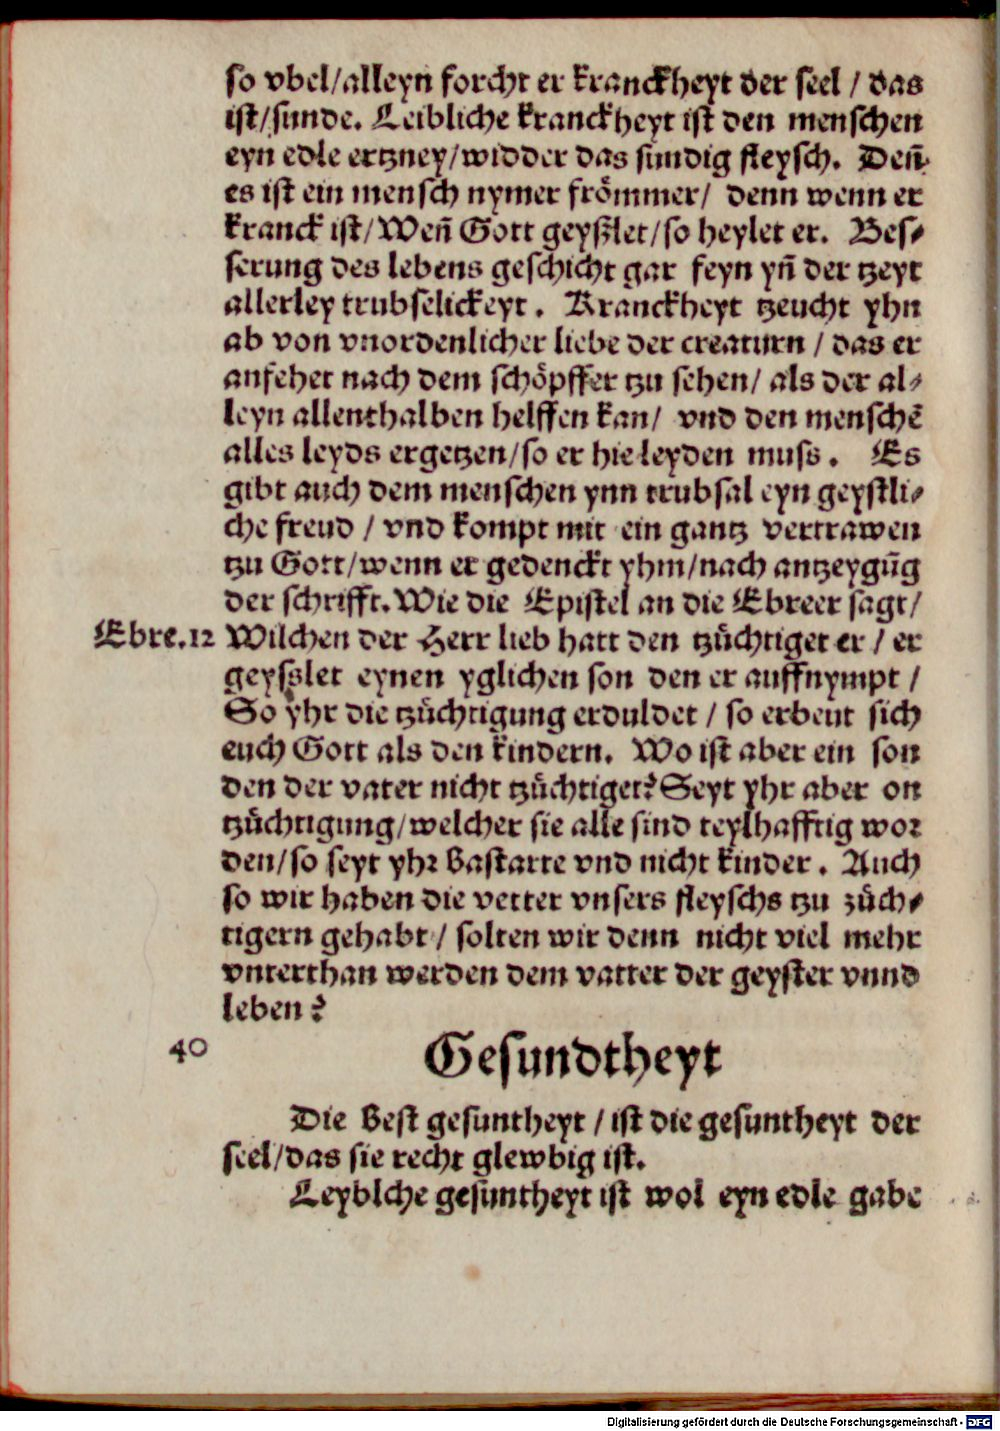 so vbel/alleyn forcht er kranckheyt der seel / das
ist/sunde. Leibliche kranckheyt ist den menschen
eyn edle ertzney/widder das sundig fleysch. Deñ
es ist ein mensch nymer frömmer/ denn wenn er
kranck ist/Weñ Gott geyszlet/so heylet er. Bes⸗
serung des lebens geschicht gar feyn yñ der tzeyt
allerley trubselickeyt. Kranckheyt tzeucht yhn
ab von vnordenlicher liebe der creaturn / das er
anfehet nach dem schöpffer tzu sehen/ als der al⸗
leyn allenthalben helffen kan/ vnd den menschē
alles leyds ergetzen/so er hie leyden muss. Es
gibt auch dem menschen ynn trubsal eyn geystli⸗
che freud / vnd kompt mit ein gantz vertrawen
tzu Gott/wenn er gedenckt yhm/nach antzeygūg
der schrifft. Wie die Epistel an die Ebreer sagt/
Ebre.12 Wilchen der Herr lieb hatt den tzůchtiget er / er
geysslet eynen yglichen son den er auffnympt /
So yhr die tzůchtigung erduldet / so erbeut sich
euch Gott als den kindern. Wo ist aber ein son
den der vater nicht tzůchtiget? Seyt yhr aber on
tzůchtigung/welcher sie alle sind teylhafftig wor
den/so seyt yhr Bastarte vnd nicht kinder. Auch
so wir haben die vetter vnsers fleyschs tzu zůch⸗
tigern gehabt / solten wir denn nicht viel mehr
vnterthan werden dem vatter der geyster vnnd
leben?
40 Gesundtheyt
Die Best gesuntheyt / ist die gesuntheyt der
seel/das sie recht glewbig ist.
Leyblche gesuntheyt ist wol eyn edle gabe
Digitalisierung gefördert durch die Deutsche Forschungsgemeinschaft - DFG